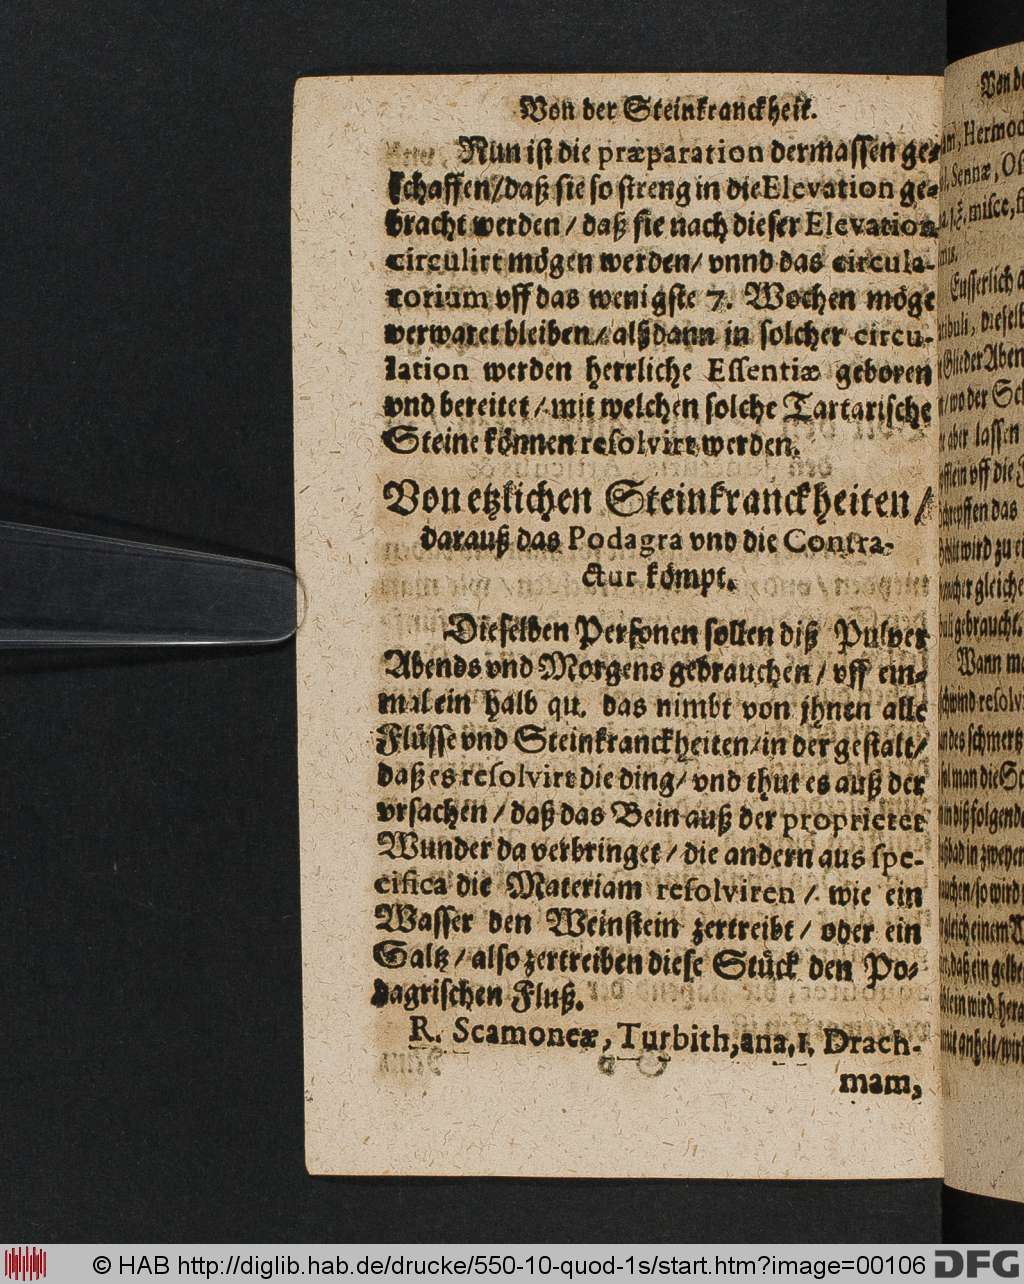 Von der Steinkranckheit.
Nun ist die præparation dermassen ge-
schaffen/daß sie so streng in die Elevation ge-
bracht werden / daß sie nach dieser Elevation
circulirt mögen werden/ vnnd das circula-
torium vff das wenigste 7. Wochen möge
verwaret bleiben/ alßdann in solcher circu-
lation werden herrliche Essentiæ geboren
vnd bereitet / mit welchen solche Tartarische
Steine können resolvirt werden.
Von etzlichen Steinkranckheiten /
darauß das Podagra vnd die Contra-
ctur kömpt.
Dieselben Personen sollen diß Pulver
Abends vnd Morgens gebrauchen / vff ein-
mal ein halb qu. das nimbt von jhnen alle
Flüsse vnd Steinkranckheiten/in der gestalt/
daß es resolvirt die ding/ vnd thut es auß der
vrsachen / daß das Bein auß der proprietet
Wunder da verbringet / die andern aus spe-
cifica die Materiam resolviren / wie ein
Wasser den Weinstein zertreibt / oder ein
Saltz / also zertreiben diese Stück den Po-
dagrischen Fluß.
R. Scamoneæ, Turbith, ana, 1. Drach-
mam,
Von de
Hermod
Sennæ, Os
misce, f
Eusserlich a
dieselb
Glieder Aben
wo der Sc
aber lassen
vff die
das
wird zu ei
gleiche
gebraucht.
Wann ma
resolv
des schmertz
man die Sc
diß folgende
in zweyen
so wird
gleich einem
daß ein gelbe
wird hera
© HAB http://diglib.hab.de/drucke/550-10-quod-1s/start.htm?image=00106
DFG